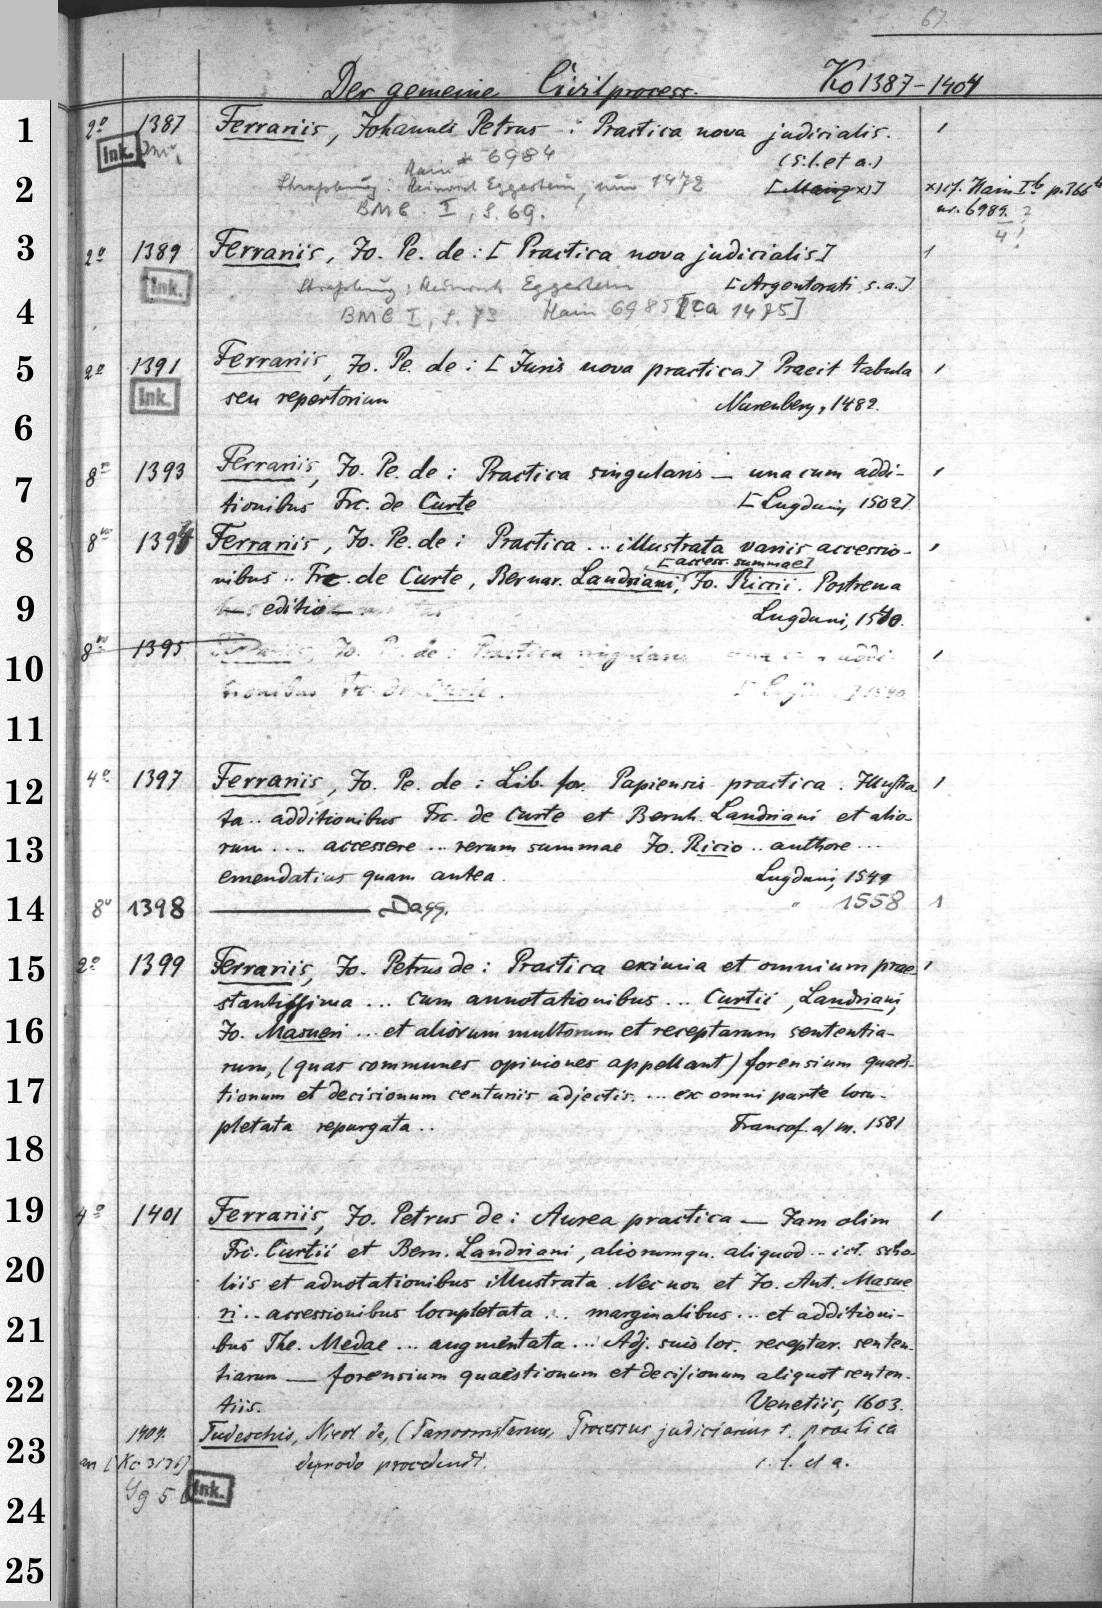 67
Der gemeine Civilprocess. Ko 1387-1404
1
2º 1387 Ferrariis, Johannes Petrus : Practica nova judicialis. 1
Ink. (S. l. et a.)
Hain * 6984
2
Strassburg: Heinrich Eggestein, um 1472 [Mainz x)] x) cf. Hain I b p. 366
BMC I, S. 69. nr. 6989. ?
4 !
3
2º 1389 Ferrariis, Jo. Pe. de : [Practica nova judicialis] 1
Ink. Strassburg: Heinrich Eggestein [Argentorati s. a.]
4
BMC I, S. 73 Hain 6985 [ca 1475]
5
2º 1391 Ferrariis, Jo. Pe. de : [Juris nova practica] Praeit tabula 1
Ink. seu repertorium Nurenberg, 1482.
6
8º 1393 Ferrariis, Jo. Pe. de : Practica singularis — una cum addi- 1
7
tionibus Frc. de Curte [Lugduni, 1502].
8
8vo 1394 Ferrariis, Jo. Pe. de : Practica .. illustrata variis accessio- 1
[access. summae]
nibus .. Frc. de Curte, Bernar. Landriani, Jo. Riccii. Postrema
9
editio Lugduni, 1540.
8vo 1395 Ferrariis, Jo. P. de : Practica singularis una cum addi- 1
10
tionibus Frc. de Curte. 1540
11
12
4º 1397 Ferrariis, Jo. Pe. de : Lib. for. Papiensis practica. Illustra- 1
ta .. additionibus Frc. de Curte et Bernh. Landriani et alio-
13
rum .... accessere ... rerum summae Jo. Ricio .. authore ...
emendatius quam antea. Lugduni, 1549
14
8º 1398 ——— Dass. " 1558 1
15
2º 1399 Ferrariis, Jo. Petrus de : Practica eximia et omnium prae- 1
stantissima ... cum annotationibus ... Curtii, Landriani,
16
Jo. Masueri ... et aliorum multorum et receptarum sententia-
rum, (quas communes opiniones appellant) forensium quaes-
17
tionum et decisionum centuriis adjectis. ... ex omni parte locu-
pletata repurgata .. Francof. a/M. 1581
18
19
4º 1401 Ferrariis, Jo. Petrus de : Aurea practica — Jam olim 1
Frc. Curtii et Bern. Landriani, aliorumqu. aliquod .. ict. scho-
20
liis et adnotationibus illustrata. Nec non et Jo. Ant. Masue
ri .. accessionibus locupletata ... marginalibus ... et additioni-
21
bus The. Medae ... augmentata ... Adj. suis loc. receptar. senten-
tiarum — forensium quaestionum et decisionum aliquot senten-
22
tiis. Venetiis, 1603.
1404. Tudeschis, Nicol. de, (Panormitanus) Processus judiciarius s. practica
23
an [Kc 3136] de modo procedendi. s. l. et a.
Gg 5 Ink.
24
25